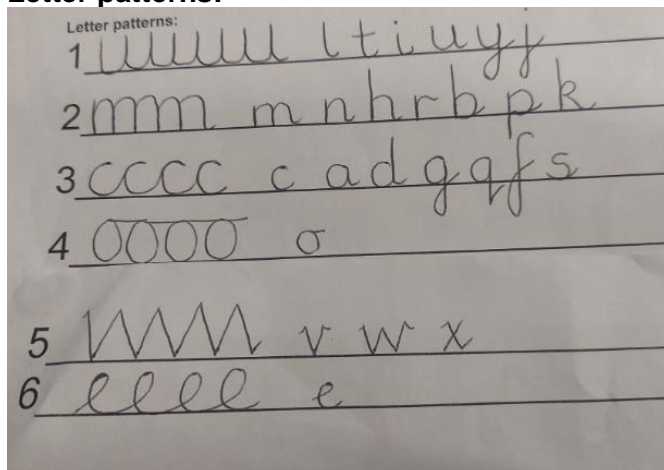 Letter patterns:
Letter patterns:
1 uuuuu l t i u y j
2 mm m n h r b p k
3 cccc c a d g q f s
4 oooo o
5 vvvv v w x
6 eeee e